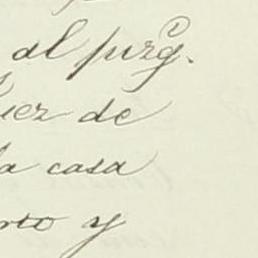 al juzg.º
uez de
la casa
rto y